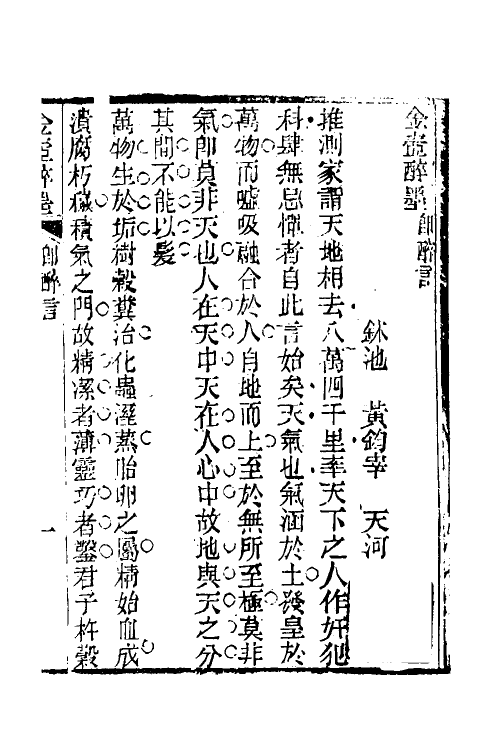 金壺醉墨 卽醉言
鉢池 黃鈞宰 天河
推測家謂天地相去八萬四千里率天下之人作奸犯
科肆無忌憚者自此言始矣天氣也氣涵於土發皇於
萬物而噓吸融合於人自地而上至於無所至極莫非
氣卽莫非天也人在天中天在人心中故地與天之分
其間不能以髮
萬物生於垢樹穀糞治化蟲溼蒸胎卵之屬精始血成
潰腐朽穢積氣之門故精潔者薄靈巧者鑿君子杵穀
金壺醉墨 卽醉言 一